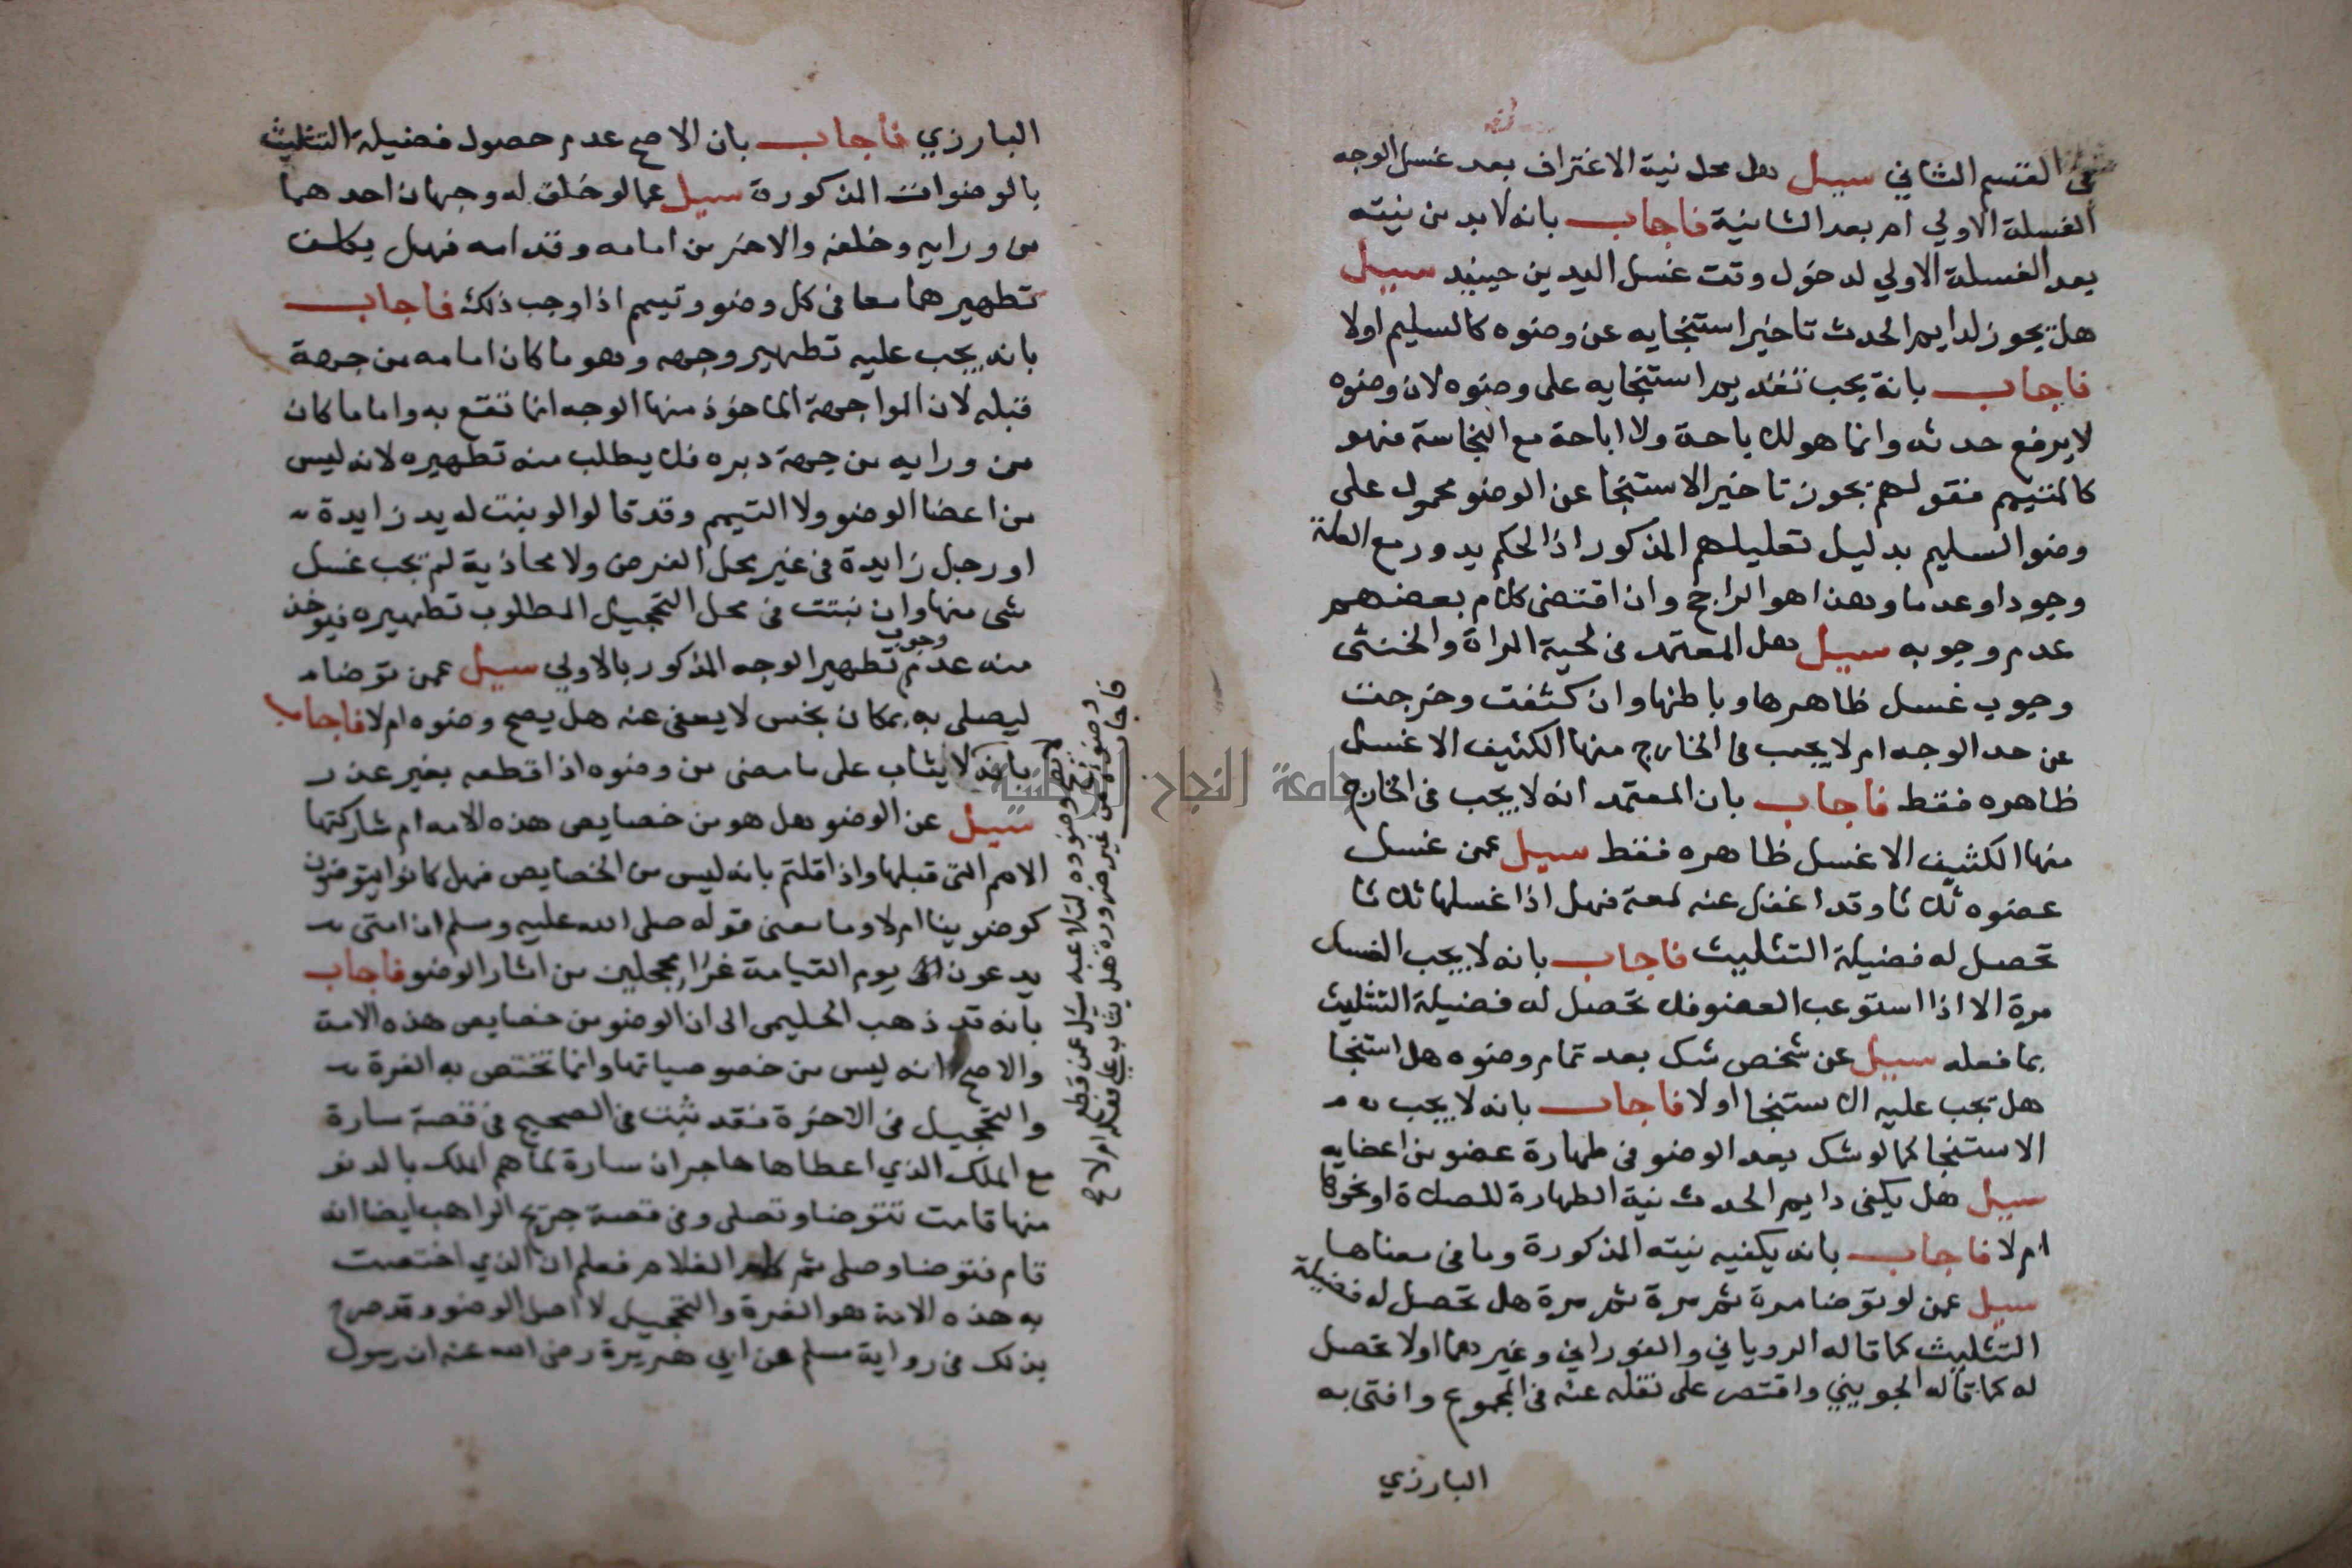 في القسم الثاني سيل هل محل نية الاغتراف بعد غسل الوجه
الغسلة الاولي ام بعد الثانية فاجاب بانه لا بد من نيته
بعد الغسلة الاولي لدخول وقت غسل اليدين حينيذ سييل
هل يجوز لدايم الحدث تاخير استنجايه عن وضوه كالسليم اولا
فاجاب بانة يجب تقديم استنجايه على وضوه لان وضوه
لا يرفع حدثه وانما هو للاباحة ولا اباحة مع النجاسة فهو
كالمتيمم فقولهم يجوز تاخير الاستنجا عن الوضو محمول على
وضو السليم بدليل تعليلهم المذكور اذ الحكم يدور مع العلة
وجودا وعدما وهذا هو الراجح وان اقتضى كلام بعضهم
عدم وجوبه سييل هل المعتمد في لحية المراة والخنثى
وجوب غسل ظاهرها وباطنها وان كثفت وخرجت
عن حد الوجه ام لا يجب في الخارج منها الكثيف الا غسل
ظاهره فقط فاجاب بان المعتمد انه لا يجب في الخارج
منها الكثيف الا غسل ظاهره فقط سيل عمن غسل
عضوه ثلاثا وقد اغفل عنه لمعة فهل اذا غسلها ثلاثا
تحصل له فضيلة التثليث فاجاب بانه لا يجب الغسل
مرة الا اذا استوعب العضو فلا تحصل له فضيلة التثليث
بما فعله سييل عن شخص شك بعد تمام وضوه هل استنجا
هل يجب عليه الاستنجا اولا فاجاب بانه لا يجب
الاستنجا كما لو شك بعد الوضو في طهارة عضو من اعضايه
سييل هل يكفي دايم الحدث نية الطهارة للصلاة او نحوها
ام لا فاجاب بانه يكفيه نيته المذكورة وما في معناها
سيل عمن لو توضا مرة ثم مرة ثم مرة هل تحصل له فضيلة
التثليث كما قاله الروياني والفوراني وغيرهما اولا تحصل
له كما قاله الجويني واقتصر على نقله عنه في المجموع وافتى به
البارزي
البارزي فاجاب بان الاصح عدم حصول فضيلة التثليث
بالوضوات المذكورة سيل عما لو خلق له وجهان احدهما
من ورايه وخلفه والاخر من امامه وقدامه فهل يكلف
تطهيرهما معا في كل وضو وتيمم اذا وجب ذلك فاجاب
بانه يجب عليه تطهير وجهه وهو ما كان امامه من جهة
قبله لان المواجهة الماخوذ منها الوجه انما تقع به واما ما كان
من ورايه من جهة دبره فلا يطلب منه تطهيره لانه ليس
من اعضا الوضو ولا التيمم وقد قالوا لو نبت له يد زايدة
او رجل زايدة في غير محل الفرض ولا محاذية لم يجب غسل
شى منها وان نبتت في محل التحجيل المطلوب تطهيره فيوخذ
منه عدم وجوب تطهير الوجه المذكور بالاولي سييل عمن توضا
ليصلى به بمكان نجس لا يعفى عنه هل يصح وضوه ام لا فاجاب
بانه لا يثاب على ما مضى من وضوه اذا قطعه بغير عذر
سييل عن الوضو هل هو من خصايص هذه الامه ام شاركتها
الامم التى قبلها واذا قلتم بانه ليس من الخصايص فهل كانوا يتوضون
كوضوينا ام لا وما معنى قوله صلى الله عليه وسلم ان امتى
يدعون يوم القيامة غرا محجلين من اثار الوضو فاجاب
بانه قد ذهب الحليمى الى ان الوضو من خصايص هذه الامة
والاصح انه ليس من خصوصياتها وانما تختص به الغرة
والتحجيل في الاخرة فقد ثبت في الصحيح في قصة سارة
مع الملك الذي اعطاها هاجر ان سارة لما هم الملك بالدنو
منها قامت تتوضا وتصلى وفي قصة جريج الراهب ايضا انه
قام فتوضا وصلى ثم كلم الغلام فعلم ان الذي اختصت
به هذه الامة هو الغرة والتحجيل لا اصل الوضو وقد صرح
بذلك في رواية مسلم عن ابي هريرة رضى الله عنه ان رسول
سيل عن قطع
وضوه من غير ضرورة هل يثاب على فعله ام لا صح
فاجاب
جامعة النجاح الوطنية